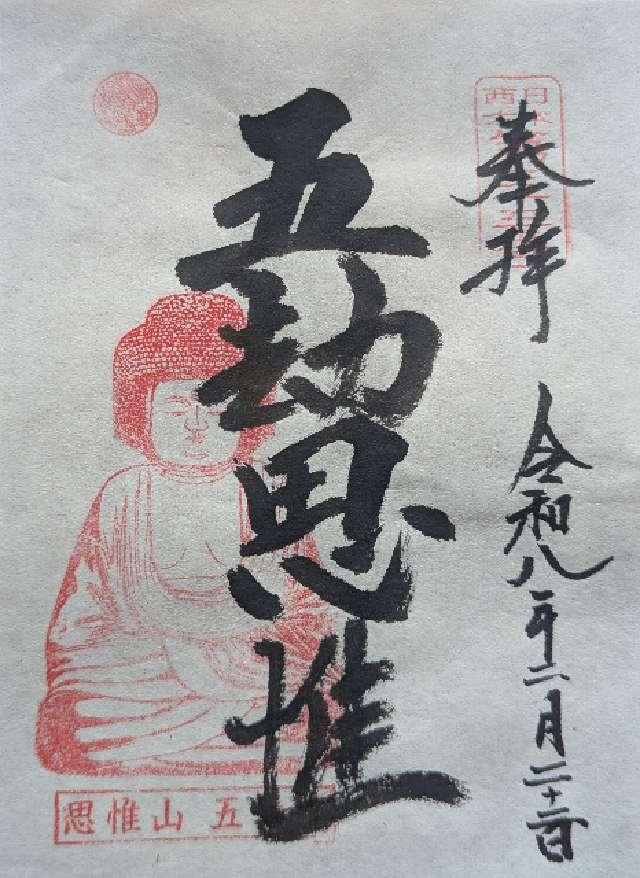 奉拝
令和八年二月二十日
五劫思惟
思惟山 五